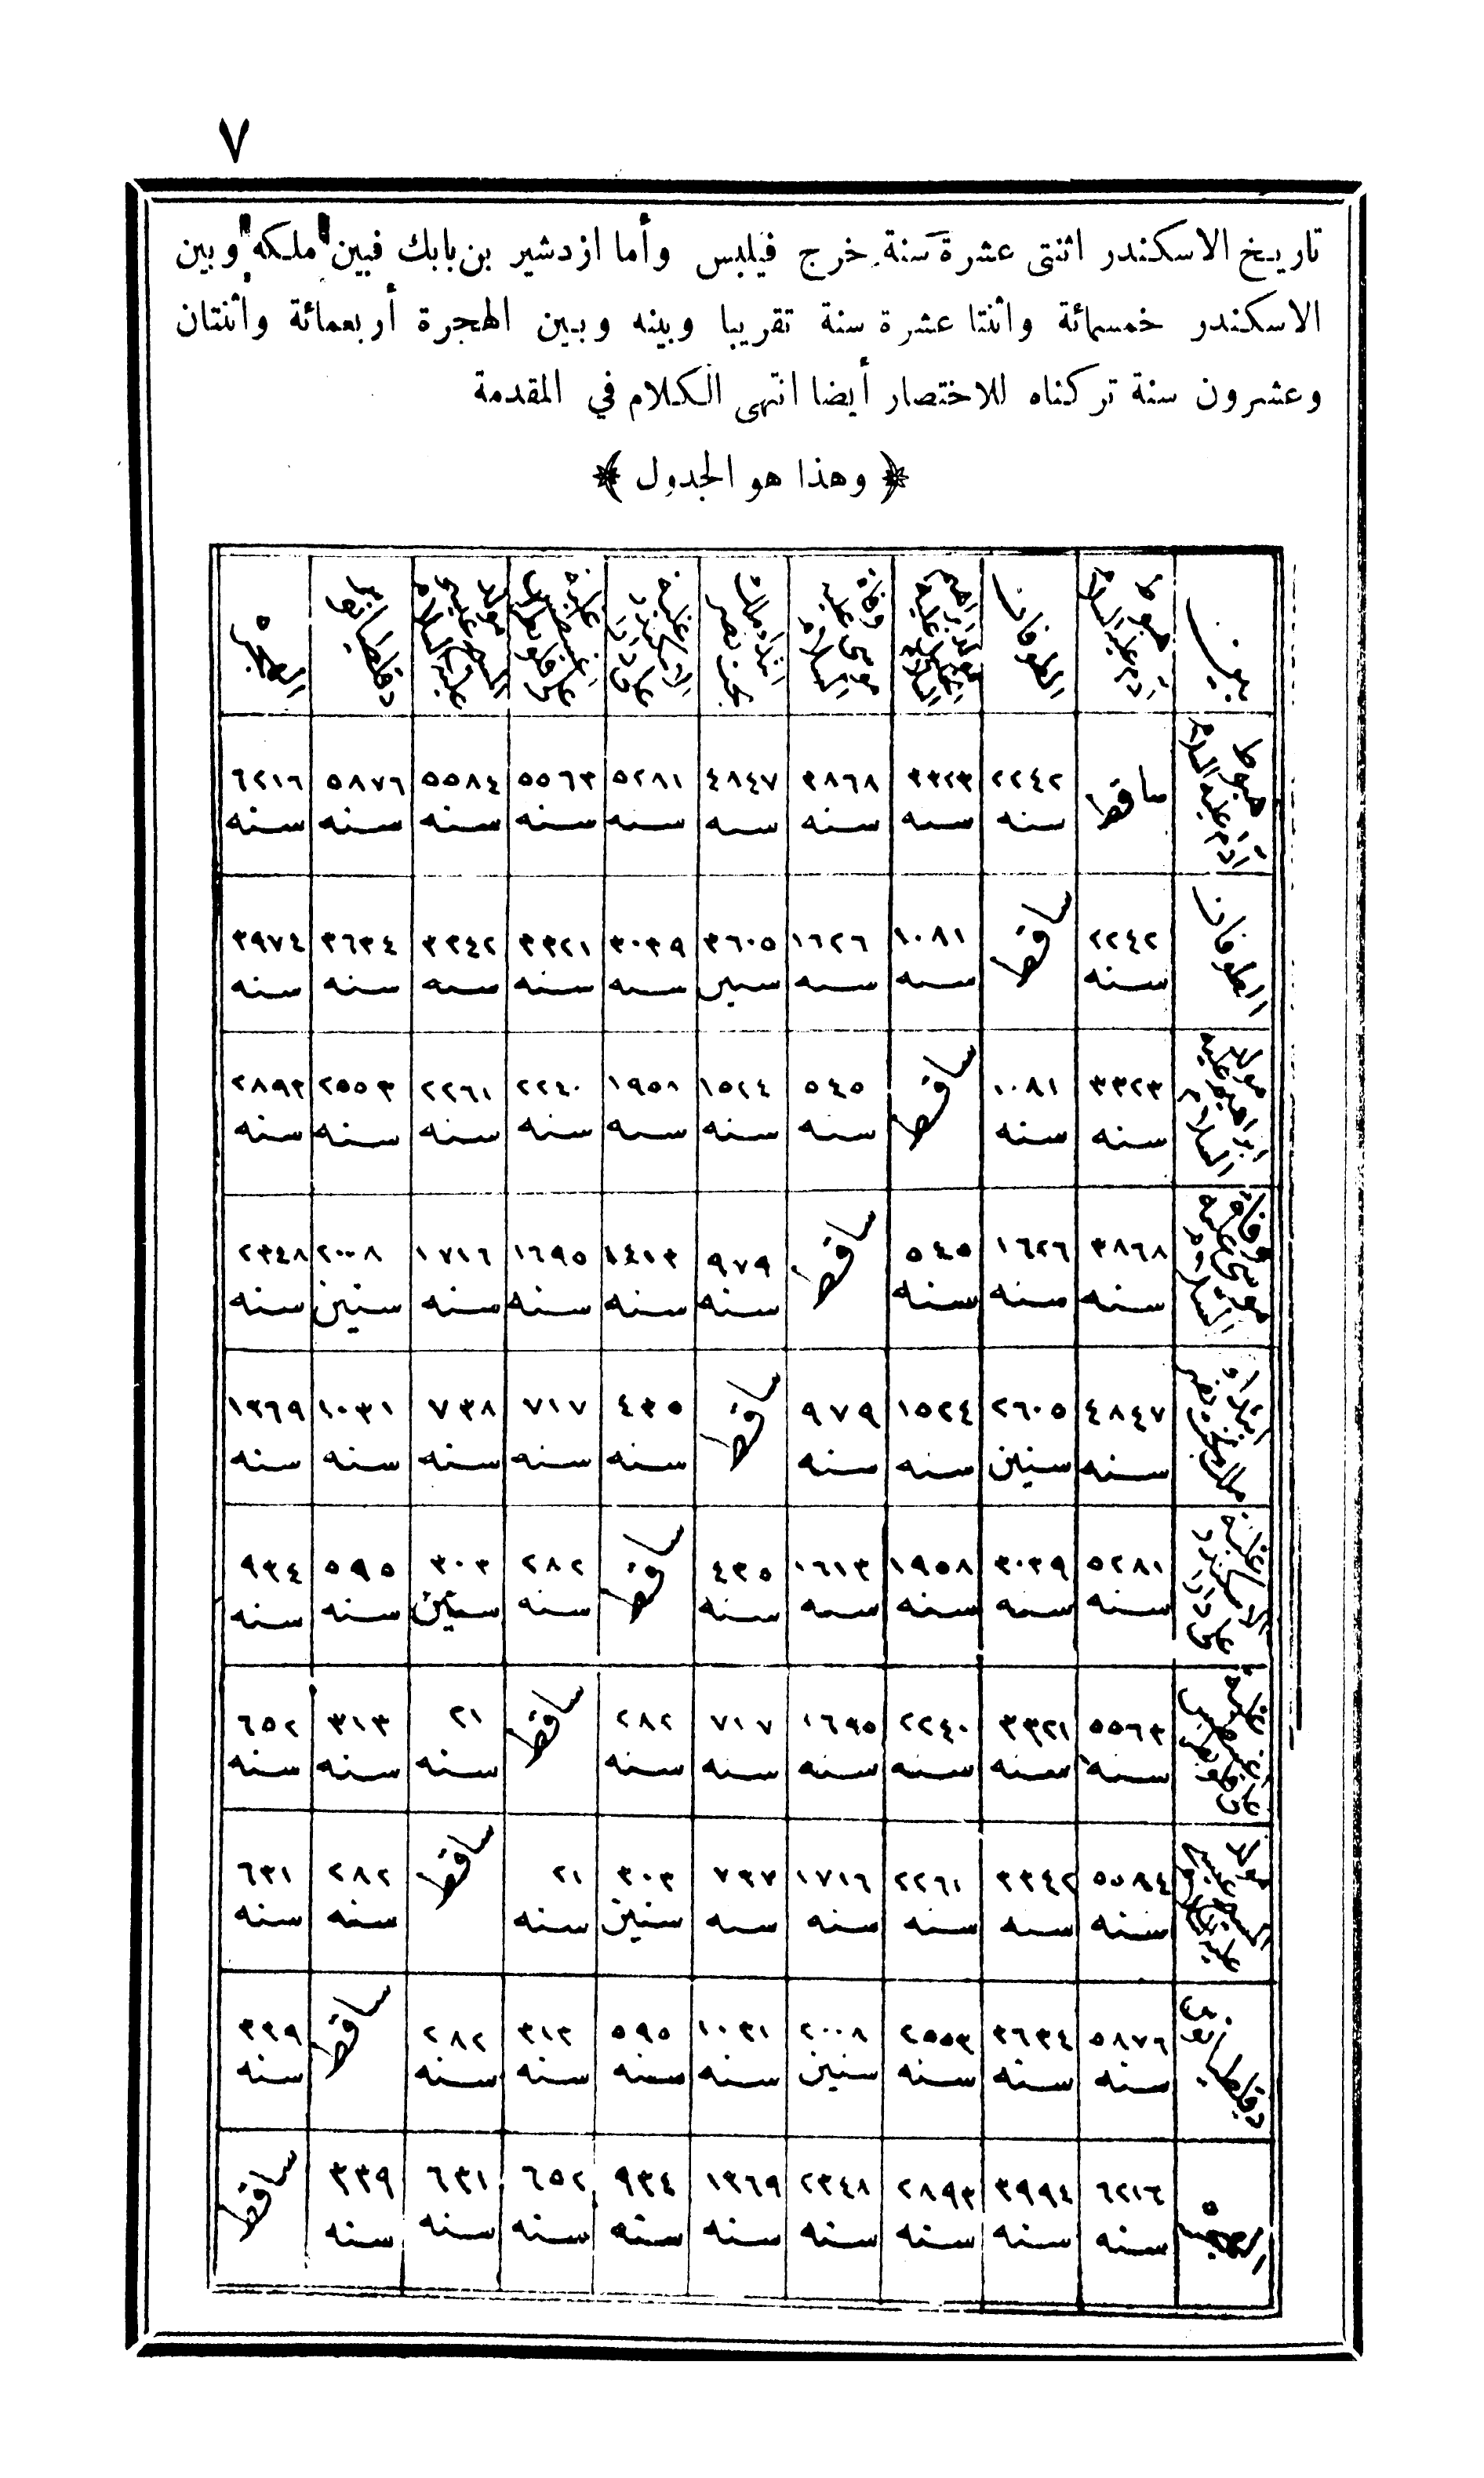 ٧
تاريخ الاسكندر اثنتى عشرة سنة خرج فيلبس وأما ازدشير بن بابك فبين ملكه وبين
الاسكندر خمسمائة واثنتا عشرة سنة تقريبا وبينه وبين الهجرة أربعمائة واثنتان
وعشرون سنة تركناه للاختصار أيضا انتهى الكلام في المقدمة
﴿ وهذا هو الجدول ﴾
بين | هبوط آدم عليه السلام | الطوفان | مولد ابراهيم الخليل عليه السلام | وفاة موسى عليه السلام | ابتداء ملك بخت نصر | غلبة الاسكندر على دارا | غلبة اغسطس على قلوبطرا | مولد المسيح عيسى عليه السلام | دقلطيانوس | الهجرة
هبوط آدم عليه السلام | ساقط | ٢٢٤٢ سنه | ٣٣٢٣ سنه | ٣٨٦٨ سنه | ٤٨٤٧ سنه | ٥٢٨١ سنه | ٥٥٦٣ سنه | ٥٥٨٤ سنه | ٥٨٧٦ سنه | ٦٢١٦ سنه
الطوفان | ٢٢٤٢ سنه | ساقط | ١٠٨١ سنه | ١٦٢٦ سنه | ٣٦٠٥ سنين | ٣٠٣٩ سنه | ٣٣٢١ سنه | ٣٣٤٢ سنه | ٣٦٣٤ سنه | ٣٩٧٤ سنه
مولد ابراهيم عليه السلام | ٣٣٢٣ سنه | ١٠٨١ سنه | ساقط | ٥٤٥ سنه | ١٥٢٤ سنه | ١٩٥٨ سنه | ٢٢٤٠ سنه | ٢٢٦١ سنه | ٢٥٥٣ سنه | ٢٨٩٣ سنه
وفاة موسى عليه السلام | ٣٨٦٨ سنه | ١٦٢٦ سنه | ٥٤٥ سنه | ساقط | ٩٧٩ سنه | ١٤١٣ سنه | ١٦٩٥ سنه | ١٧١٦ سنه | ٢٠٠٨ سنين | ٢٣٤٨ سنه
ابتداء ملك بخت نصر | ٤٨٤٧ سنه | ٢٦٠٥ سنين | ١٥٢٤ سنه | ٩٧٩ سنه | ساقط | ٤٣٥ سنه | ٧١٧ سنه | ٧٣٨ سنه | ١٠٣١ سنه | ١٣٦٩ سنه
غلبة الاسكندر على دارا | ٥٢٨١ سنه | ٣٠٣٩ سنه | ١٩٥٨ سنه | ١٦١٣ سنه | ٤٣٥ سنه | ساقط | ٢٨٢ سنه | ٣٠٣ سنين | ٥٩٥ سنه | ٩٣٤ سنه
غلبة اغسطس على قلوبطرا | ٥٥٦٣ سنه | ٣٣٢١ سنه | ٢٢٤٠ سنه | ١٦٩٥ سنه | ٧١٧ سنه | ٢٨٢ سنه | ساقط | ٢١ سنه | ٣١٣ سنه | ٦٥٢ سنه
مولد المسيح عيسى عليه السلام | ٥٥٨٤ سنه | ٣٣٤٢ سنه | ٢٢٦١ سنه | ١٧١٦ سنه | ٧٣٧ سنه | ٣٠٣ سنين | ٢١ سنه | ساقط | ٢٨٢ سنه | ٦٣١ سنه
دقلطيانوس | ٥٨٧٦ سنه | ٣٦٣٤ سنه | ٢٥٥٣ سنه | ٢٠٠٨ سنين | ١٠٣١ سنه | ٥٩٥ سنه | ٣١٣ سنه | ٢٨٢ سنه | ساقط | ٣٣٩ سنه
الهجرة | ٦٢١٦ سنه | ٣٩٩٤ سنه | ٢٨٩٣ سنه | ٢٣٤٨ سنه | ١٣٦٩ سنه | ٩٣٤ سنه | ٦٥٢ سنه | ٦٣١ سنه | ٣٣٩ سنه | ساقط